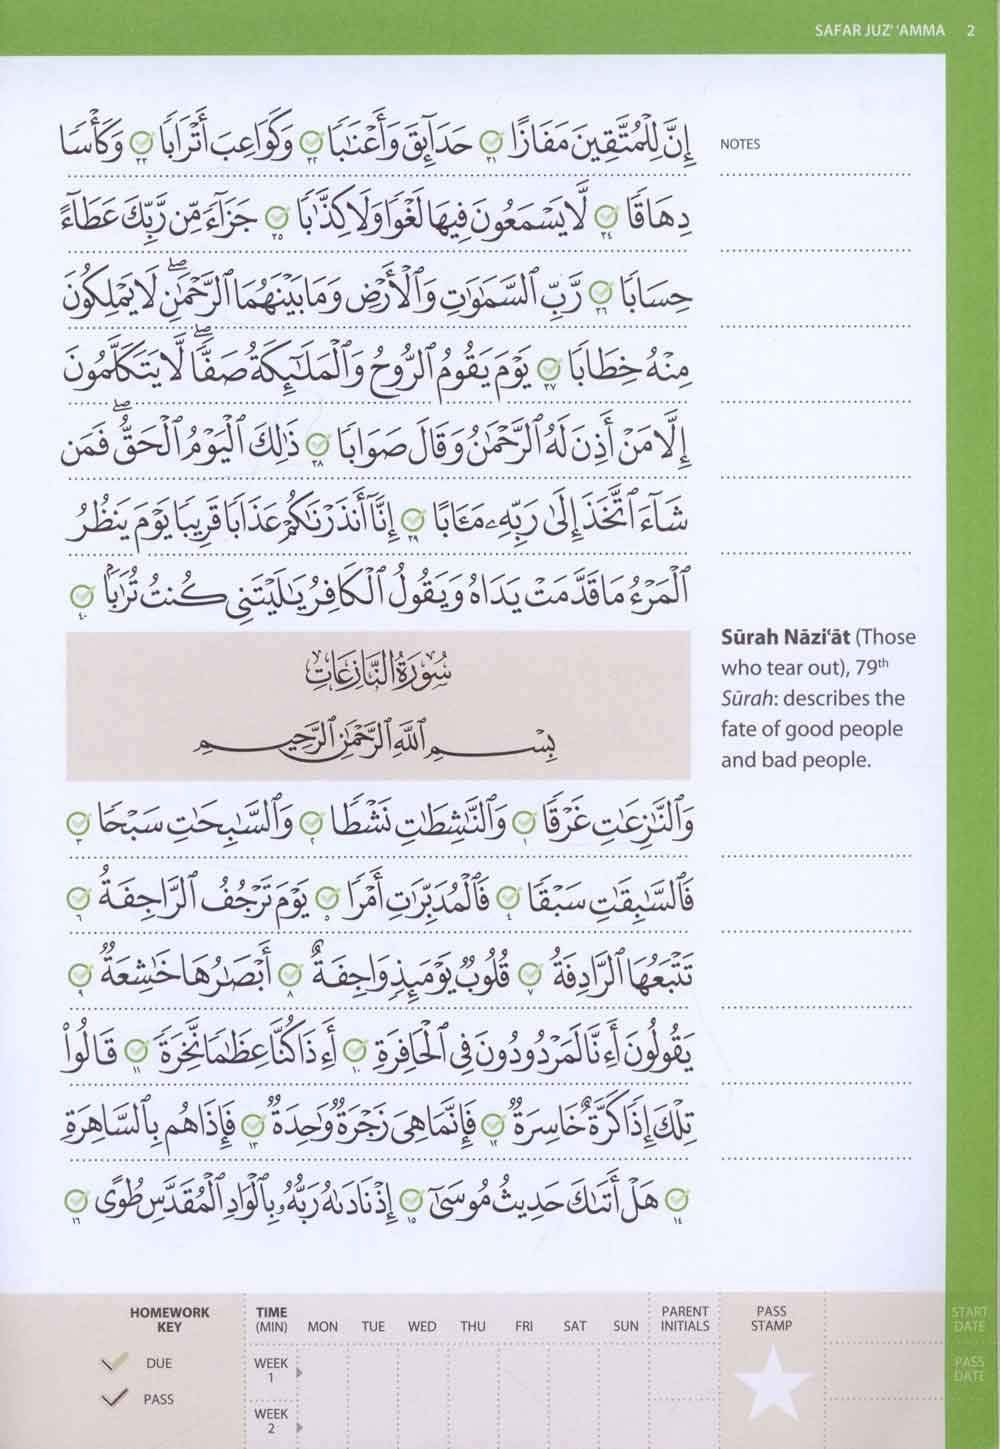 SAFAR JUZ' 'AMMA 2
إِنَّ لِلْمُتَّقِينَ مَفَازًا ٣١ حَدَآئِقَ وَأَعْنَٰبًا ٣٢ وَكَوَاعِبَ أَتْرَابًا ٣٣ وَكَأْسًا
دِهَاقًا ٣٤ لَّا يَسْمَعُونَ فِيهَا لَغْوًا وَلَا كِذَّٰبًا ٣٥ جَزَآءً مِّن رَّبِّكَ عَطَآءً
حِسَابًا ٣٦ رَّبِّ ٱلسَّمَٰوَٰتِ وَٱلْأَرْضِ وَمَا بَيْنَهُمَا ٱلرَّحْمَٰنِ ۖ لَا يَمْلِكُونَ
مِنْهُ خِطَابًا ٣٧ يَوْمَ يَقُومُ ٱلرُّوحُ وَٱلْمَلَٰٓئِكَةُ صَفًّا ۖ لَّا يَتَكَلَّمُونَ
إِلَّا مَنْ أَذِنَ لَهُ ٱلرَّحْمَٰنُ وَقَالَ صَوَابًا ٣٨ ذَٰلِكَ ٱلْيَوْمُ ٱلْحَقُّ ۖ فَمَن
شَآءَ ٱتَّخَذَ إِلَىٰ رَبِّهِۦ مَـَٔابًا ٣٩ إِنَّآ أَنذَرْنَٰكُمْ عَذَابًا قَرِيبًا يَوْمَ يَنظُرُ
ٱلْمَرْءُ مَا قَدَّمَتْ يَدَاهُ وَيَقُولُ ٱلْكَافِرُ يَٰلَيْتَنِى كُنتُ تُرَٰبًۢا ٤٠
سُورَةُ النَّازِعَاتِ
بِسْمِ ٱللَّهِ ٱلرَّحْمَٰنِ ٱلرَّحِيمِ
وَٱلنَّٰزِعَٰتِ غَرْقًا ١ وَٱلنَّٰشِطَٰتِ نَشْطًا ٢ وَٱلسَّٰبِحَٰتِ سَبْحًا ٣
فَٱلسَّٰبِقَٰتِ سَبْقًا ٤ فَٱلْمُدَبِّرَٰتِ أَمْرًا ٥ يَوْمَ تَرْجُفُ ٱلرَّاجِفَةُ ٦
تَتْبَعُهَا ٱلرَّادِفَةُ ٧ قُلُوبٌ يَوْمَئِذٍ وَاجِفَةٌ ٨ أَبْصَٰرُهَا خَٰشِعَةٌ ٩
يَقُولُونَ أَءِنَّا لَمَرْدُودُونَ فِى ٱلْحَافِرَةِ ١٠ أَءِذَا كُنَّا عِظَٰمًا نَّخِرَةً ١١ قَالُوا۟
تِلْكَ إِذًا كَرَّةٌ خَاسِرَةٌ ١٢ فَإِنَّمَا هِىَ زَجْرَةٌ وَٰحِدَةٌ ١٣ فَإِذَا هُم بِٱلسَّاهِرَةِ
١٤ هَلْ أَتَىٰكَ حَدِيثُ مُوسَىٰٓ ١٥ إِذْ نَادَىٰهُ رَبُّهُۥ بِٱلْوَادِ ٱلْمُقَدَّسِ طُوًى ١٦
NOTES
Sūrah Nāzi‘āt (Those
who tear out), 79th
Sūrah: describes the
fate of good people
and bad people.
HOMEWORK
KEY
DUE
PASS
TIME
(MIN) MON TUE WED THU FRI SAT SUN
WEEK
1
WEEK
2
PARENT
INITIALS
PASS
STAMP
START
DATE
PASS
DATE